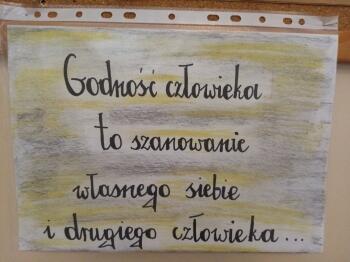 Godność człowieka
to szanowanie
własnego siebie
i drugiego człowieka...